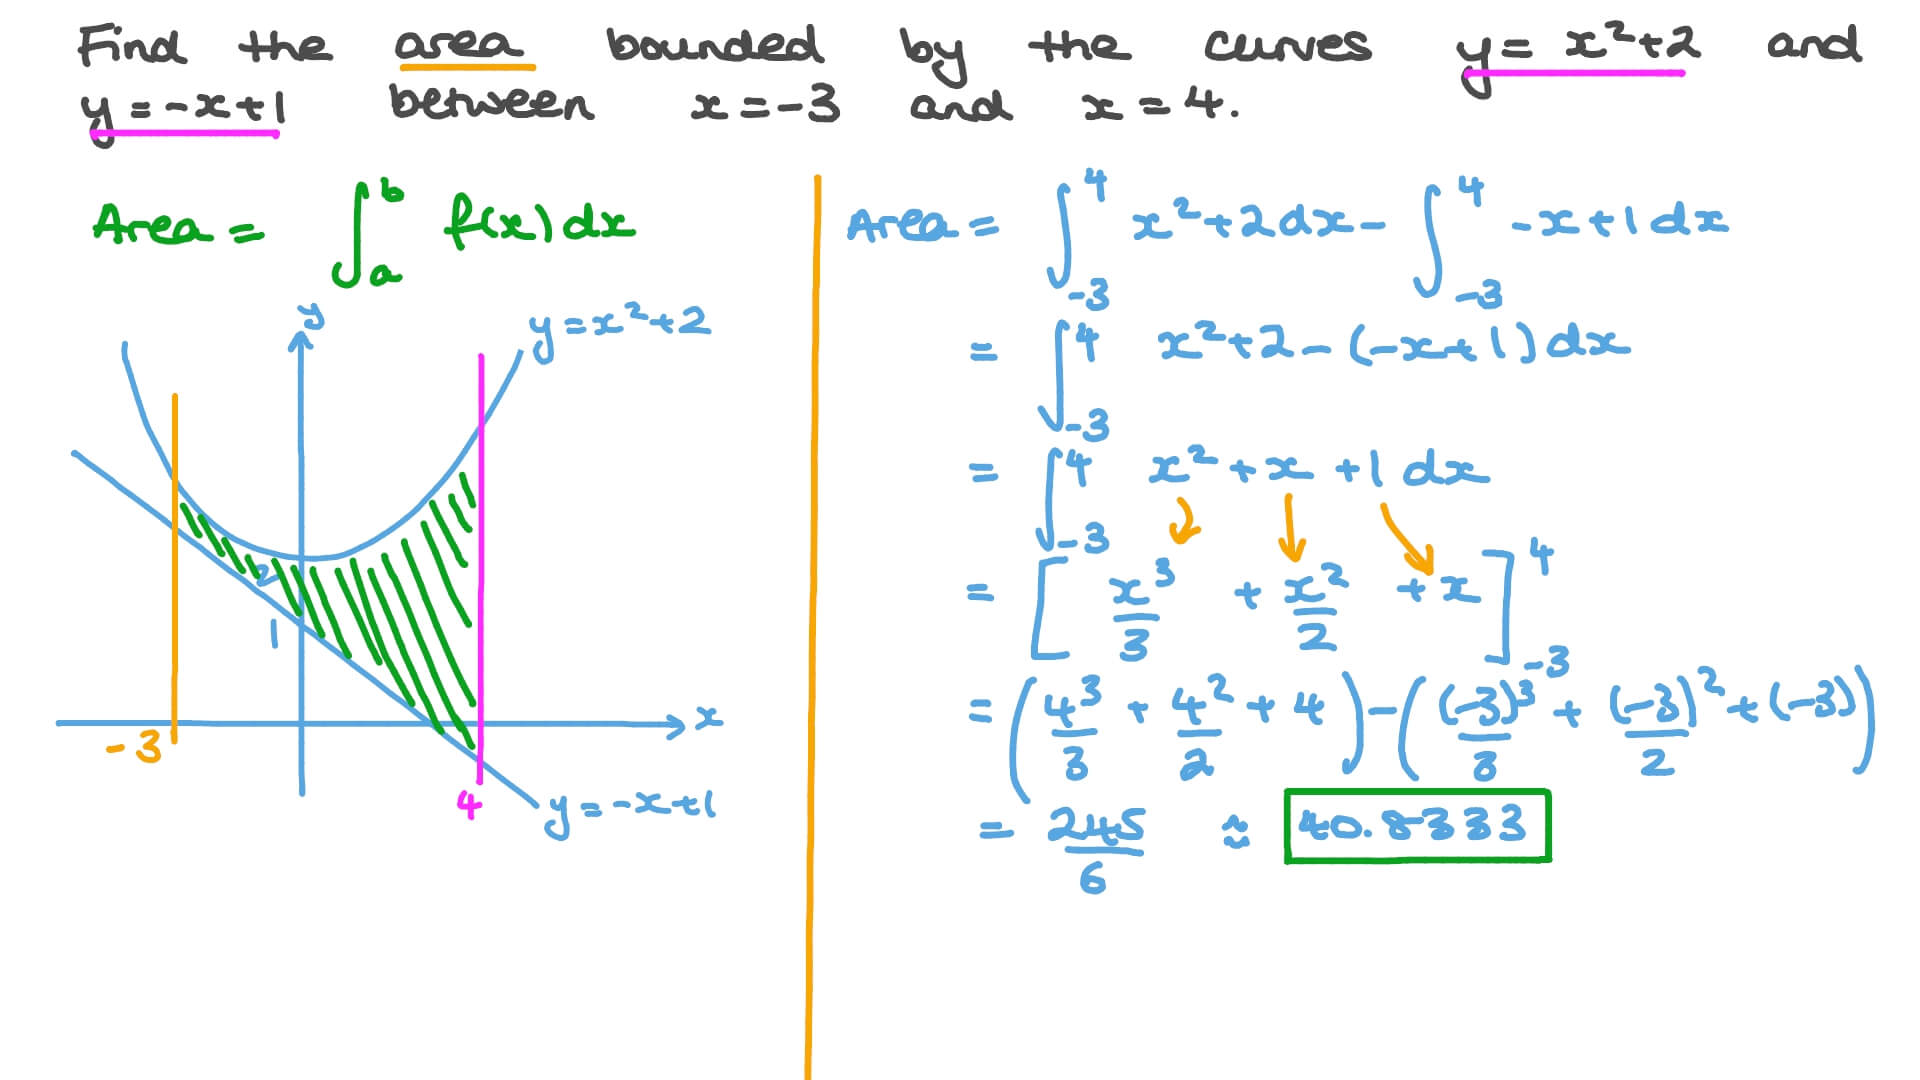 Find the area bounded by the curves y = x²+2 and
y = -x+1 between x = -3 and x = 4.
Area = ∫_a^b f(x) dx
y
y = x²+2
2
1
x
-3
4
y = -x+1
Area = ∫_{-3}^{4} x²+2 dx - ∫_{-3}^{4} -x+1 dx
= ∫_{-3}^{4} x²+2-(-x+1) dx
= ∫_{-3}^{4} x²+x+1 dx
= [x³/3 + x²/2 + x]_{-3}^{4}
= (4³/3 + 4²/2 + 4) - ((-3)³/3 + (-3)²/2 + (-3))
= 245/6 ≈ 40.8333